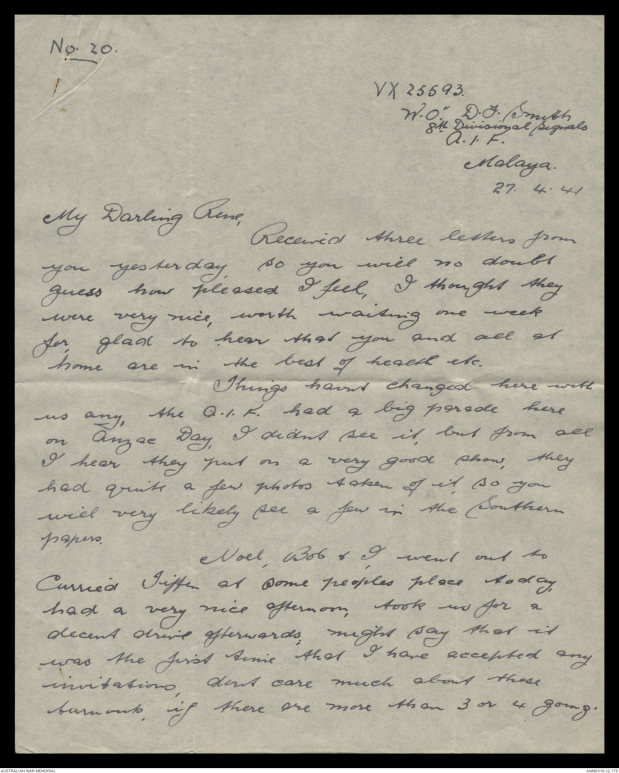 No. 20.
VX 25593.
"W.O" D.F. Smith
8th Divisional Signals
A.I.F.
Malaya.
27. 4. 41
My Darling Rene,
Received three letters from
you yesterday, so you will no doubt
guess how pleased I feel, I thought they
were very nice, worth waiting one week
for, glad to hear that you and all at
home are in the best of health etc.
Things havnt changed here with
us any, the A.I.F. had a big parade here
on Anzac Day, I didnt see it, but from all
I hear they put on a very good show, they
had quite a few photos taken of it, so you
will very likely see a few in the Southern
papers.
Noel, Bob & I, went out to
Curried Tiffen at some peoples place today,
had a very nice afternoon, took us for a
decent drive afterwards, might say that it
was the first time that I have accepted any
invitations, dont care much about these
turnouts, if there are more than 3 or 4 going.
AUSTRALIAN WAR MEMORIAL